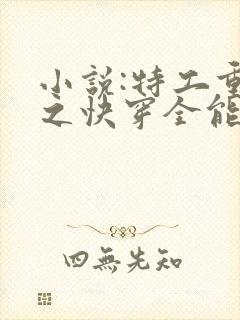 小說:特工重
之快穿全能
四無先知